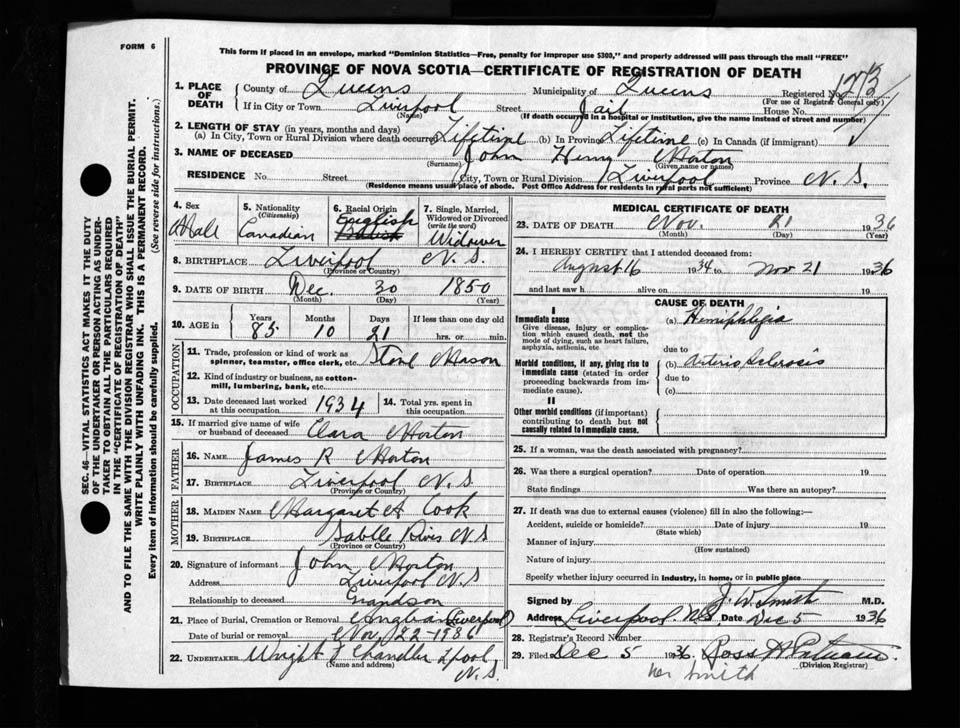 FORM 6
This form if placed in an envelope, marked "Dominion Statistics—Free, penalty for improper use $300," and properly addressed will pass through the mail "FREE"
PROVINCE OF NOVA SCOTIA—CERTIFICATE OF REGISTRATION OF DEATH
1. PLACE OF DEATH
County of Queens Municipality of Queens Registered No. 123
(For use of Registrar General only)
If in City or Town Liverpool Street Jail House No.
(Name) (If death occurred in a hospital or institution, give the name instead of street and number)
2. LENGTH OF STAY (in years, months and days)
(a) In City, Town or Rural Division where death occurred Lifetime (b) In Province Lifetime (c) In Canada (if immigrant)
3. NAME OF DECEASED John Henry Morton
(Surname) (Given name or names)
RESIDENCE No. Street City, Town or Rural Division Liverpool Province N. S.
(Residence means usual place of abode. Post Office Address for residents in rural parts not sufficient)
4. Sex
Male
5. Nationality
(Citizenship)
Canadian
6. Racial Origin
English
7. Single, Married, Widowed or Divorced
(write the word)
Widower
8. BIRTHPLACE Liverpool N. S.
(Province or Country)
9. DATE OF BIRTH Dec. 30 1850
(Month) (Day) (Year)
10. AGE in Years Months Days If less than one day old
85 10 21 hrs. or min.
OCCUPATION
11. Trade, profession or kind of work as spinner, teamster, office clerk, etc. Stone Mason
12. Kind of industry or business, as cotton-mill, lumbering, bank, etc.
13. Date deceased last worked at this occupation 1934
14. Total yrs. spent in this occupation
15. If married give name of wife or husband of deceased Clara Morton
FATHER
16. Name James R Morton
17. Birthplace Liverpool N. S.
(Province or Country)
MOTHER
18. Maiden Name Margaret A Cook
19. Birthplace Sable River N S
(Province or Country)
20. Signature of informant John Morton
Address Liverpool N. S
Relationship to deceased Grandson
21. Place of Burial, Cremation or Removal Liverpool
Date of burial or removal Nov. 22-1936
22. Undertaker Wright & Chandler L'pool
(Name and address) N. S.
MEDICAL CERTIFICATE OF DEATH
23. DATE OF DEATH Nov. 21 1936
(Month) (Day) (Year)
24. I HEREBY CERTIFY that I attended deceased from:
August 16 1934 to Nov 21 1936
and last saw h alive on 19
CAUSE OF DEATH
I
Immediate cause
Give disease, injury or complication which caused death, not the mode of dying, such as heart failure, asphyxia, asthenia, etc.
(a) Hemiphlegia
due to
Morbid conditions, if any, giving rise to immediate cause (stated in order proceeding backwards from immediate cause).
(b) Arterio Sclerosis
due to
(c)
II
Other morbid conditions (if important) contributing to death but not causally related to immediate cause.
25. If a woman, was the death associated with pregnancy?
26. Was there a surgical operation? Date of operation 19
State findings Was there an autopsy?
27. If death was due to external causes (violence) fill in also the following:—
Accident, suicide or homicide? Date of injury 19
(State which)
Manner of injury
(How sustained)
Nature of injury
Specify whether injury occurred in industry, in home, or in public place
Signed by J. W. Smith M.D.
Address Liverpool. N.S. Date Dec 5 1936
28. Registrar's Record Number
29. Filed Dec 5 1936
(Division Registrar)
Smith
SEC. 46—VITAL STATISTICS ACT MAKES IT THE DUTY
OF THE UNDERTAKER OR PERSON ACTING AS UNDERTAKER TO OBTAIN ALL THE PARTICULARS REQUIRED
IN THE "CERTIFICATE OF REGISTRATION OF DEATH"
AND TO FILE THE SAME WITH THE DIVISION REGISTRAR WHO SHALL ISSUE THE BURIAL PERMIT.
WRITE PLAINLY WITH UNFADING INK. THIS IS A PERMANENT RECORD.
Every item of information should be carefully supplied. (See reverse side for instructions.)